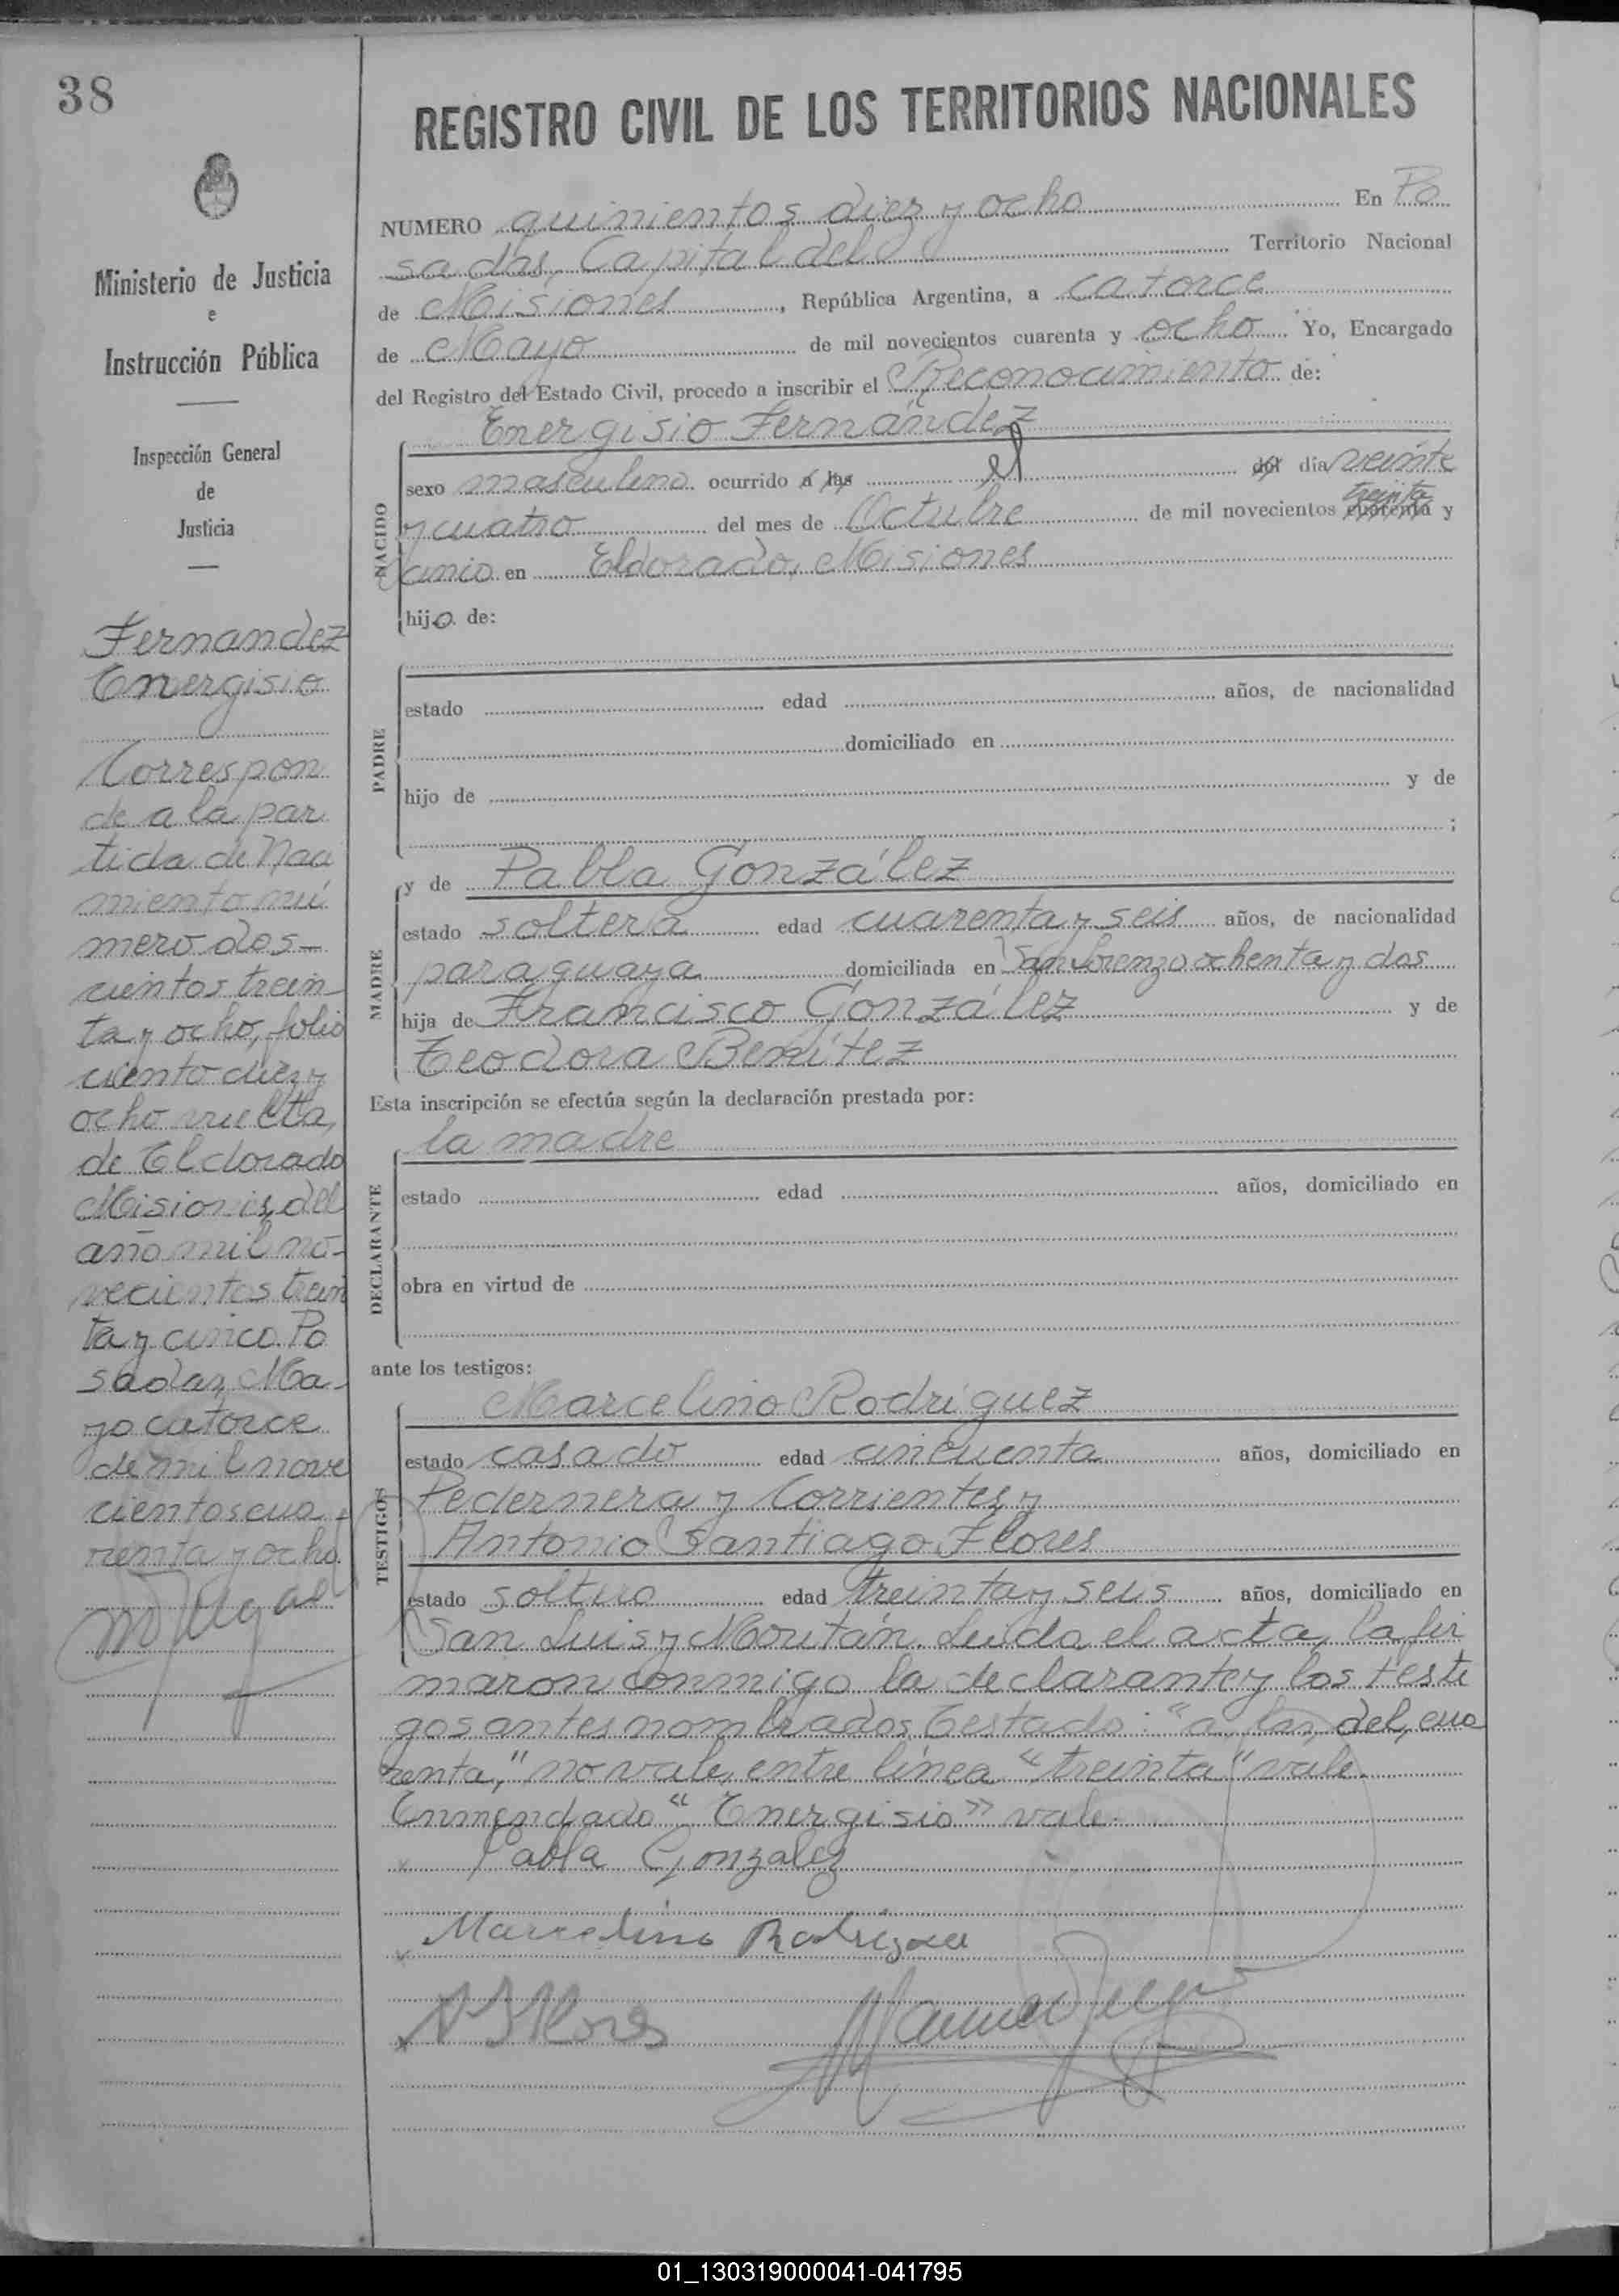 38
Ministerio de Justicia
e
Instrucción Pública
Inspección General
de
Justicia
Fernandez
Energisio
Correspon
de a la par
tida de Naci
miento nú
mero dos-
cientos trein
ta y ocho, folio
ciento diez y
ocho vuelta,
de Eldorado
Misiones, del
año mil no-
vecientos trein
ta y cinco. Po
sadas, Ma-
yo catorce
de mil nove
cientos cua-
renta y ocho.
REGISTRO CIVIL DE LOS TERRITORIOS NACIONALES
NUMERO quinientos diez y ocho En Po
sadas, Capital del Territorio Nacional
de Misiones, República Argentina, a catorce
de Mayo de mil novecientos cuarenta y ocho Yo, Encargado
del Registro del Estado Civil, procedo a inscribir el Reconocimiento de:
Energisio Fernández
NACIDO
sexo masculino ocurrido á las el del día veinte
treinta
y cuatro del mes de Octubre de mil novecientos cuarenta y
cinco en Eldorado, Misiones
hijo de:
PADRE
estado edad años, de nacionalidad
domiciliado en
hijo de y de
;
MADRE
y de Pabla González
estado soltera edad cuarenta y seis años, de nacionalidad
paraguaya domiciliada en San Lorenzo ochenta y dos
hija de Francisco González y de
Teodora Benítez
Esta inscripción se efectúa según la declaración prestada por:
la madre
DECLARANTE
estado edad años, domiciliado en
obra en virtud de
ante los testigos:
TESTIGOS
Marcelino Rodríguez
estado casado edad cincuenta años, domiciliado en
Pedernera y Corrientes y
Antonio Santiago Flores
estado soltero edad treinta y seis años, domiciliado en
San Luis y Moritán. Leída el acta, la fir
maron conmigo la declarante y los testi
gos antes nombrados. Testado: "a, las, del, cua
renta," no vale, entre línea "treinta" vale.
Enmendado "Energisio" vale.
Pabla Gonzalez
Marcelino Rodriguez
A S Flores
Manuel
01_130319000041-041795